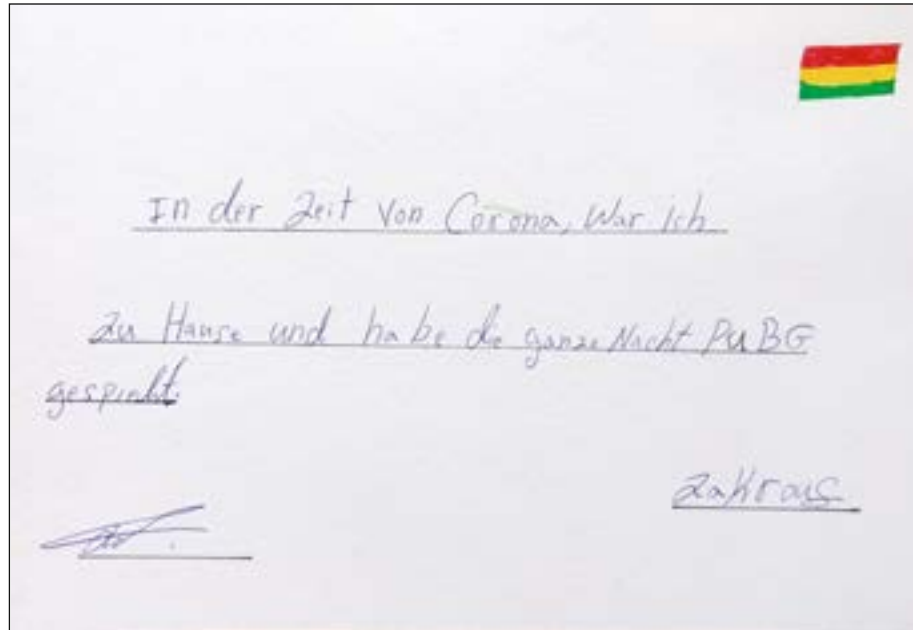 In der Zeit von Corona, War ich
zu Hause und habe die ganze Nacht PUBG
gespielt.